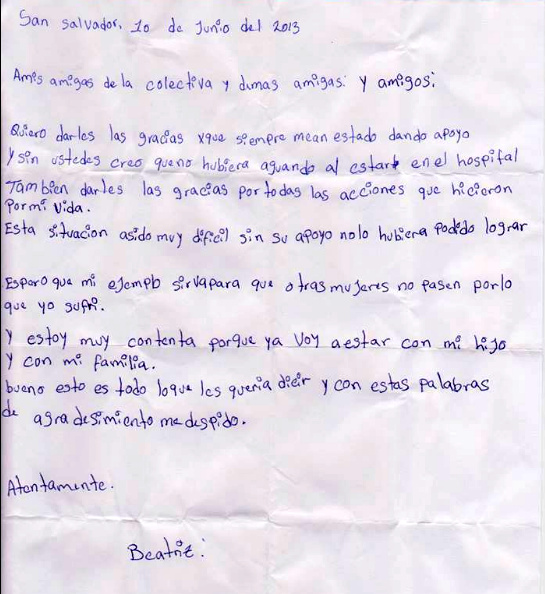 San Salvador, 10 de Junio del 2013
Amis amigas de la colectiva y dumas amigas: y amigos:
Quiero darles las gracias xque siempre mean estado dando apoyo
y sin ustedes creo queno hubiera aguando al estar en el hospital
Tambien darles las gracias por todas las acciones que hicieron
Por mi vida.
Esta situacion asido muy dificil sin su apoyo nolo hubiera podido lograr
Espero que mi ejemplo sirvapara que otras mujeres no pasen porlo
que yo sufri.
Y estoy muy contenta porque ya voy aestar con mi hijo
y con mi familia.
bueno esto es todo loque les queria dicir y con estas palabras
de agradesimiento me despido.
Atentamente.
Beatriz: